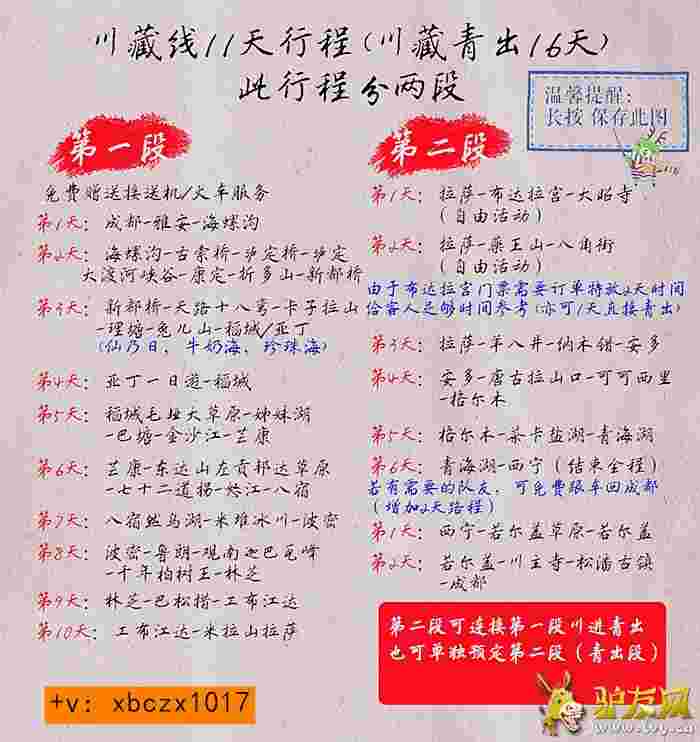 川藏线11天行程(川藏青出16天)
此行程分两段
温馨提醒:
长按 保存此图
第一段
免费赠送接送机/火车服务
第1天: 成都-雅安-海螺沟
第2天: 海螺沟-古索桥-泸定桥-泸定
大渡河峡谷-康定-折多山-新都桥
第3天: 新都桥-天路十八弯-卡子拉山
-理塘-兔儿山-稻城/亚丁
(仙乃日,牛奶海,珍珠海)
第4天: 亚丁一日游-稻城
第5天: 稻城毛垭大草原-姊妹湖
-巴塘-金沙江-芒康
第6天: 芒康-东达山左贡邦达草原
-七十二道拐-怒江-八宿
第7天: 八宿然乌湖-米堆冰川-波密
第8天: 波密-鲁朗-观南迦巴瓦峰
-千年柏树王-林芝
第9天: 林芝-巴松措-工布江达
第10天: 工布江达-米拉山拉萨
+v: xbczx1017
第二段
第1天: 拉萨-布达拉宫-大昭寺
(自由活动)
第2天: 拉萨-药王山-八角街
(自由活动)
由于布达拉宫门票需要订单特放2天时间
给客人足够时间参考(亦可1天直接青出)
第3天: 拉萨-羊八井-纳木错-安多
第4天: 安多-唐古拉山口-可可西里
-格尔木
第5天: 格尔木-茶卡盐湖-青海湖
第6天: 青海湖-西宁(结束全程)
若有需要的队友,可免费跟车回成都
(增加2天路程)
第1天: 西宁-若尔盖草原-若尔盖
第2天: 若尔盖-川主寺-松潘古镇
-成都
第二段可连接第一段川进青出
也可单独预定第二段(青出段)
驴友网
www.lvy.cn